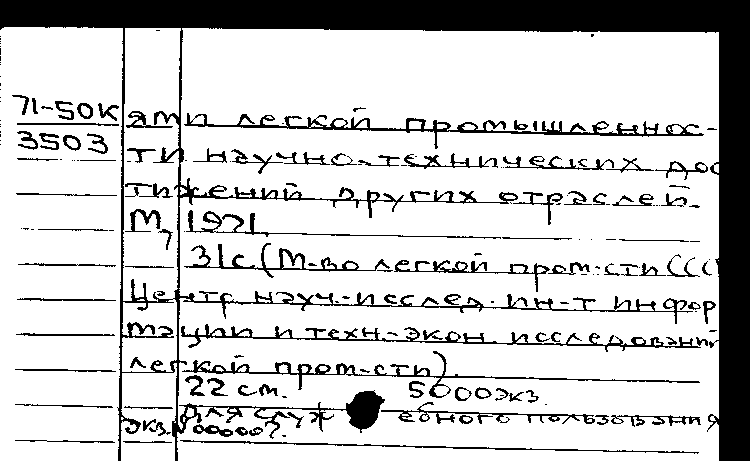 71-50К ями легкой промышленнос-
3503 ти научно-технических дос
тижений других отраслей.
М, 1971.
31с. (М-во легкой пром-сти СССР
Центр науч.-исслед. ин-т инфор
мации и техн-экон. исследований
легкой пром-сти).
22 см. 5000экз.
Для служебного пользования
экз. № 000007.